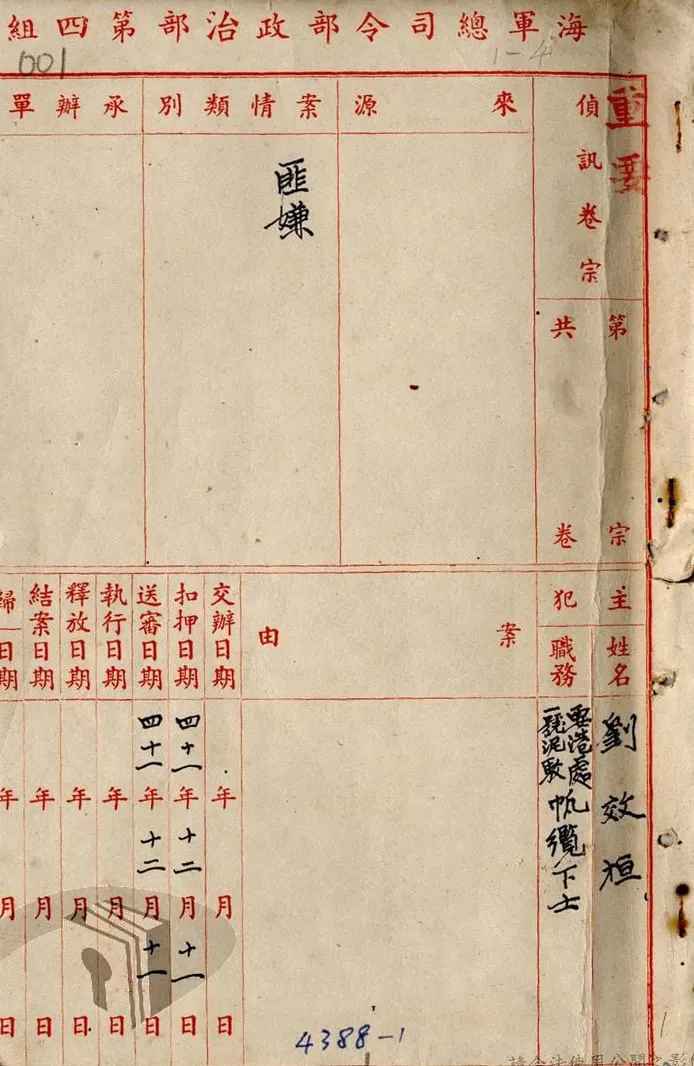 海軍總司令部政治部第四組
001
1-4
重要
偵訊卷宗
第 宗
共 卷
來源
案情類別
匪嫌
承辦單
主犯
姓名
劉效桓
職務
要港處
一號泥駁帆纜下士
案由
交辦日期
年 月 日
扣押日期
四十一年十二月十一日
送審日期
四十一年十二月十一日
執行日期
年 月 日
釋放日期
年 月 日
結案日期
年 月 日
歸 日期
年 月 日
4388-1
1